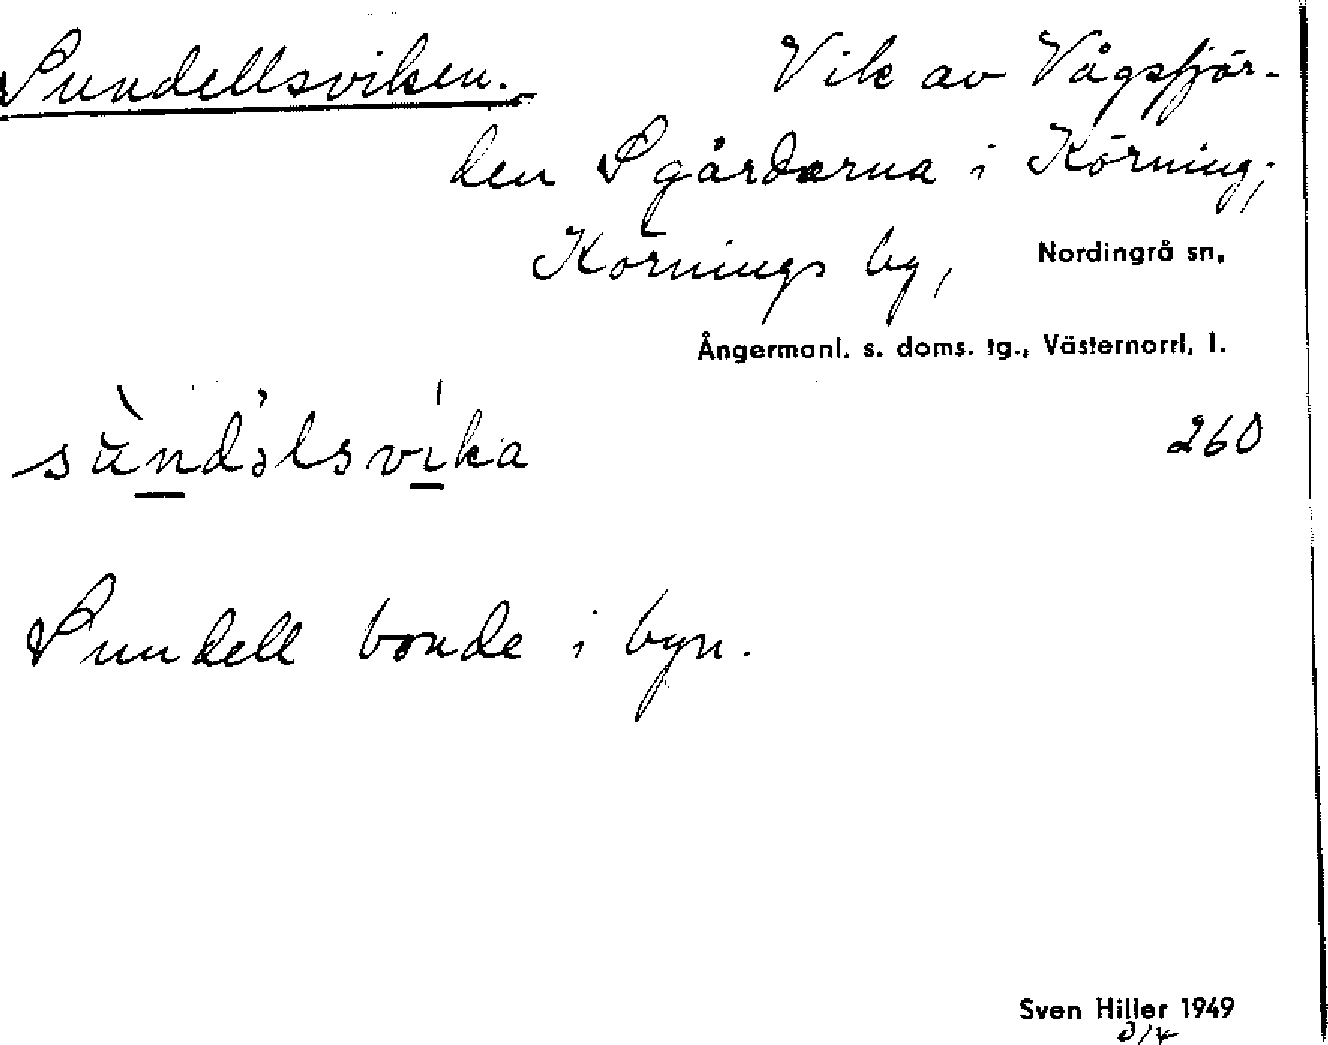 Sundellsviken. Vik av Vågsfjär-
den S gårdarna i Körning;
Körnings by, Nordingrå sn,
Ångermanl. s. doms. tg., Västernorrl. l.
sùndəlsvíka 260
Sundell bonde i byn.
Sven Hiller 1949